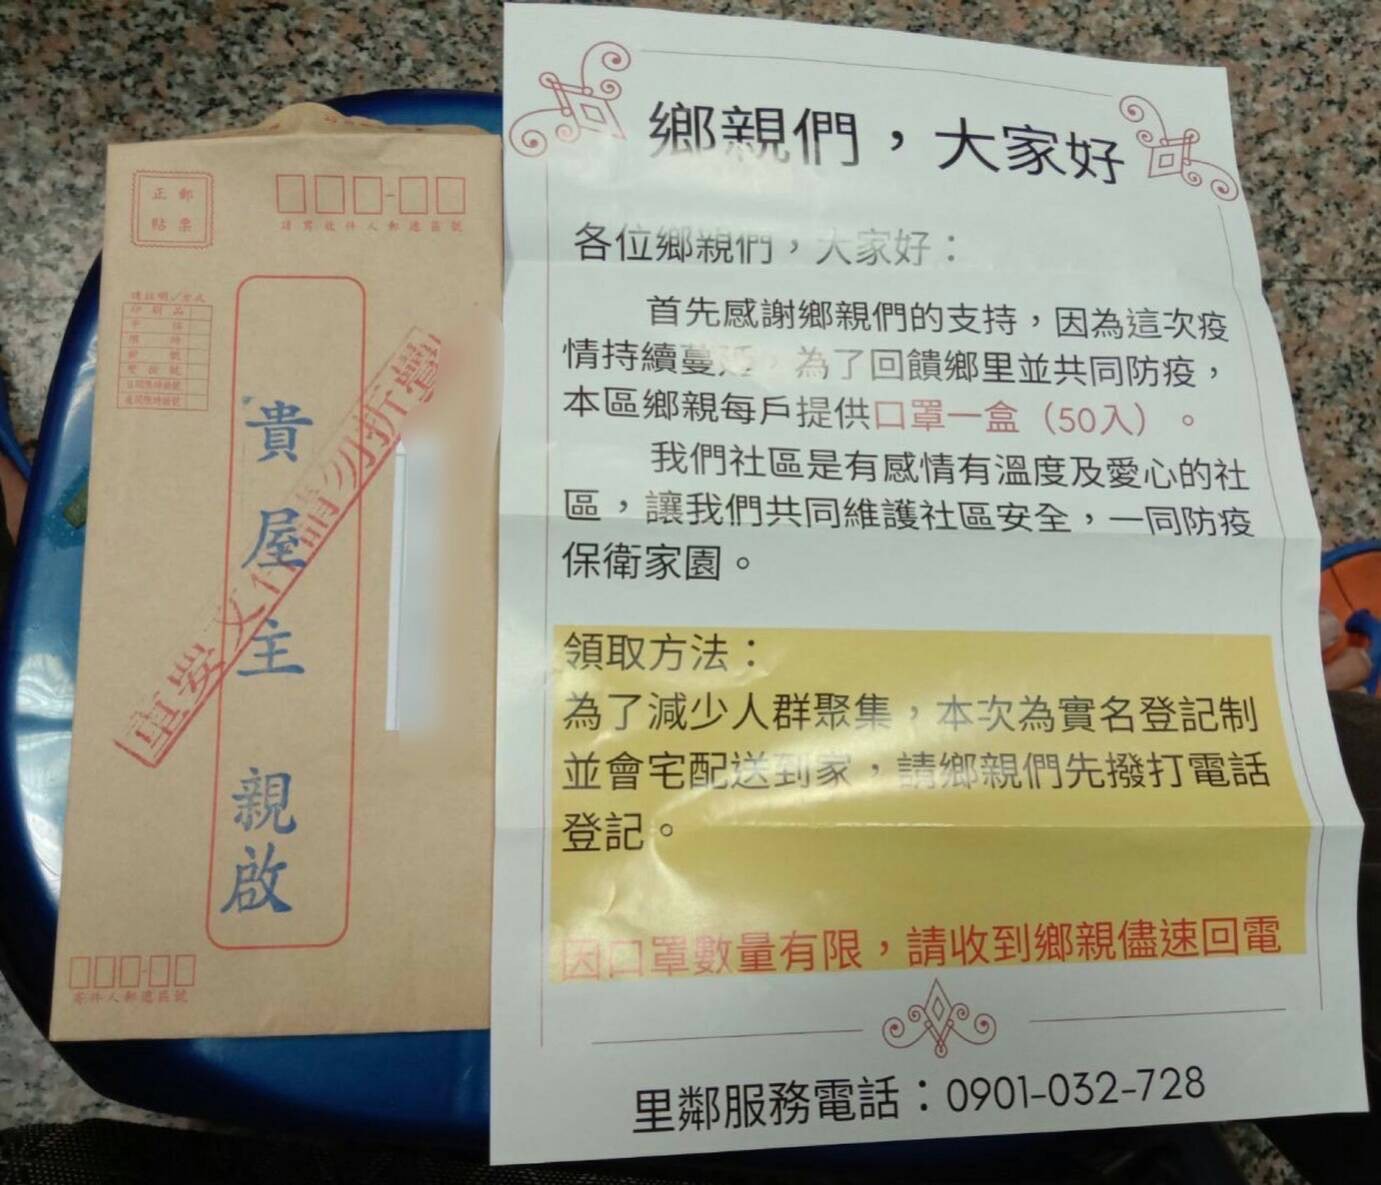 正郵
帖票
請寫收件人郵遞區號
貴屋主 親啟
重要文件請勿折疊
寄件人郵遞區號
鄉親們，大家好
各位鄉親們，大家好：
首先感謝鄉親們的支持，因為這次疫
情持續蔓延，為了回饋鄉里並共同防疫，
本區鄉親每戶提供口罩一盒（50入）。
我們社區是有感情有溫度及愛心的社
區，讓我們共同維護社區安全，一同防疫
保衛家園。
領取方法：
為了減少人群聚集，本次為實名登記制
並會宅配送到家，請鄉親們先撥打電話
登記。
因口罩數量有限，請收到鄉親儘速回電
里鄰服務電話：0901-032-728